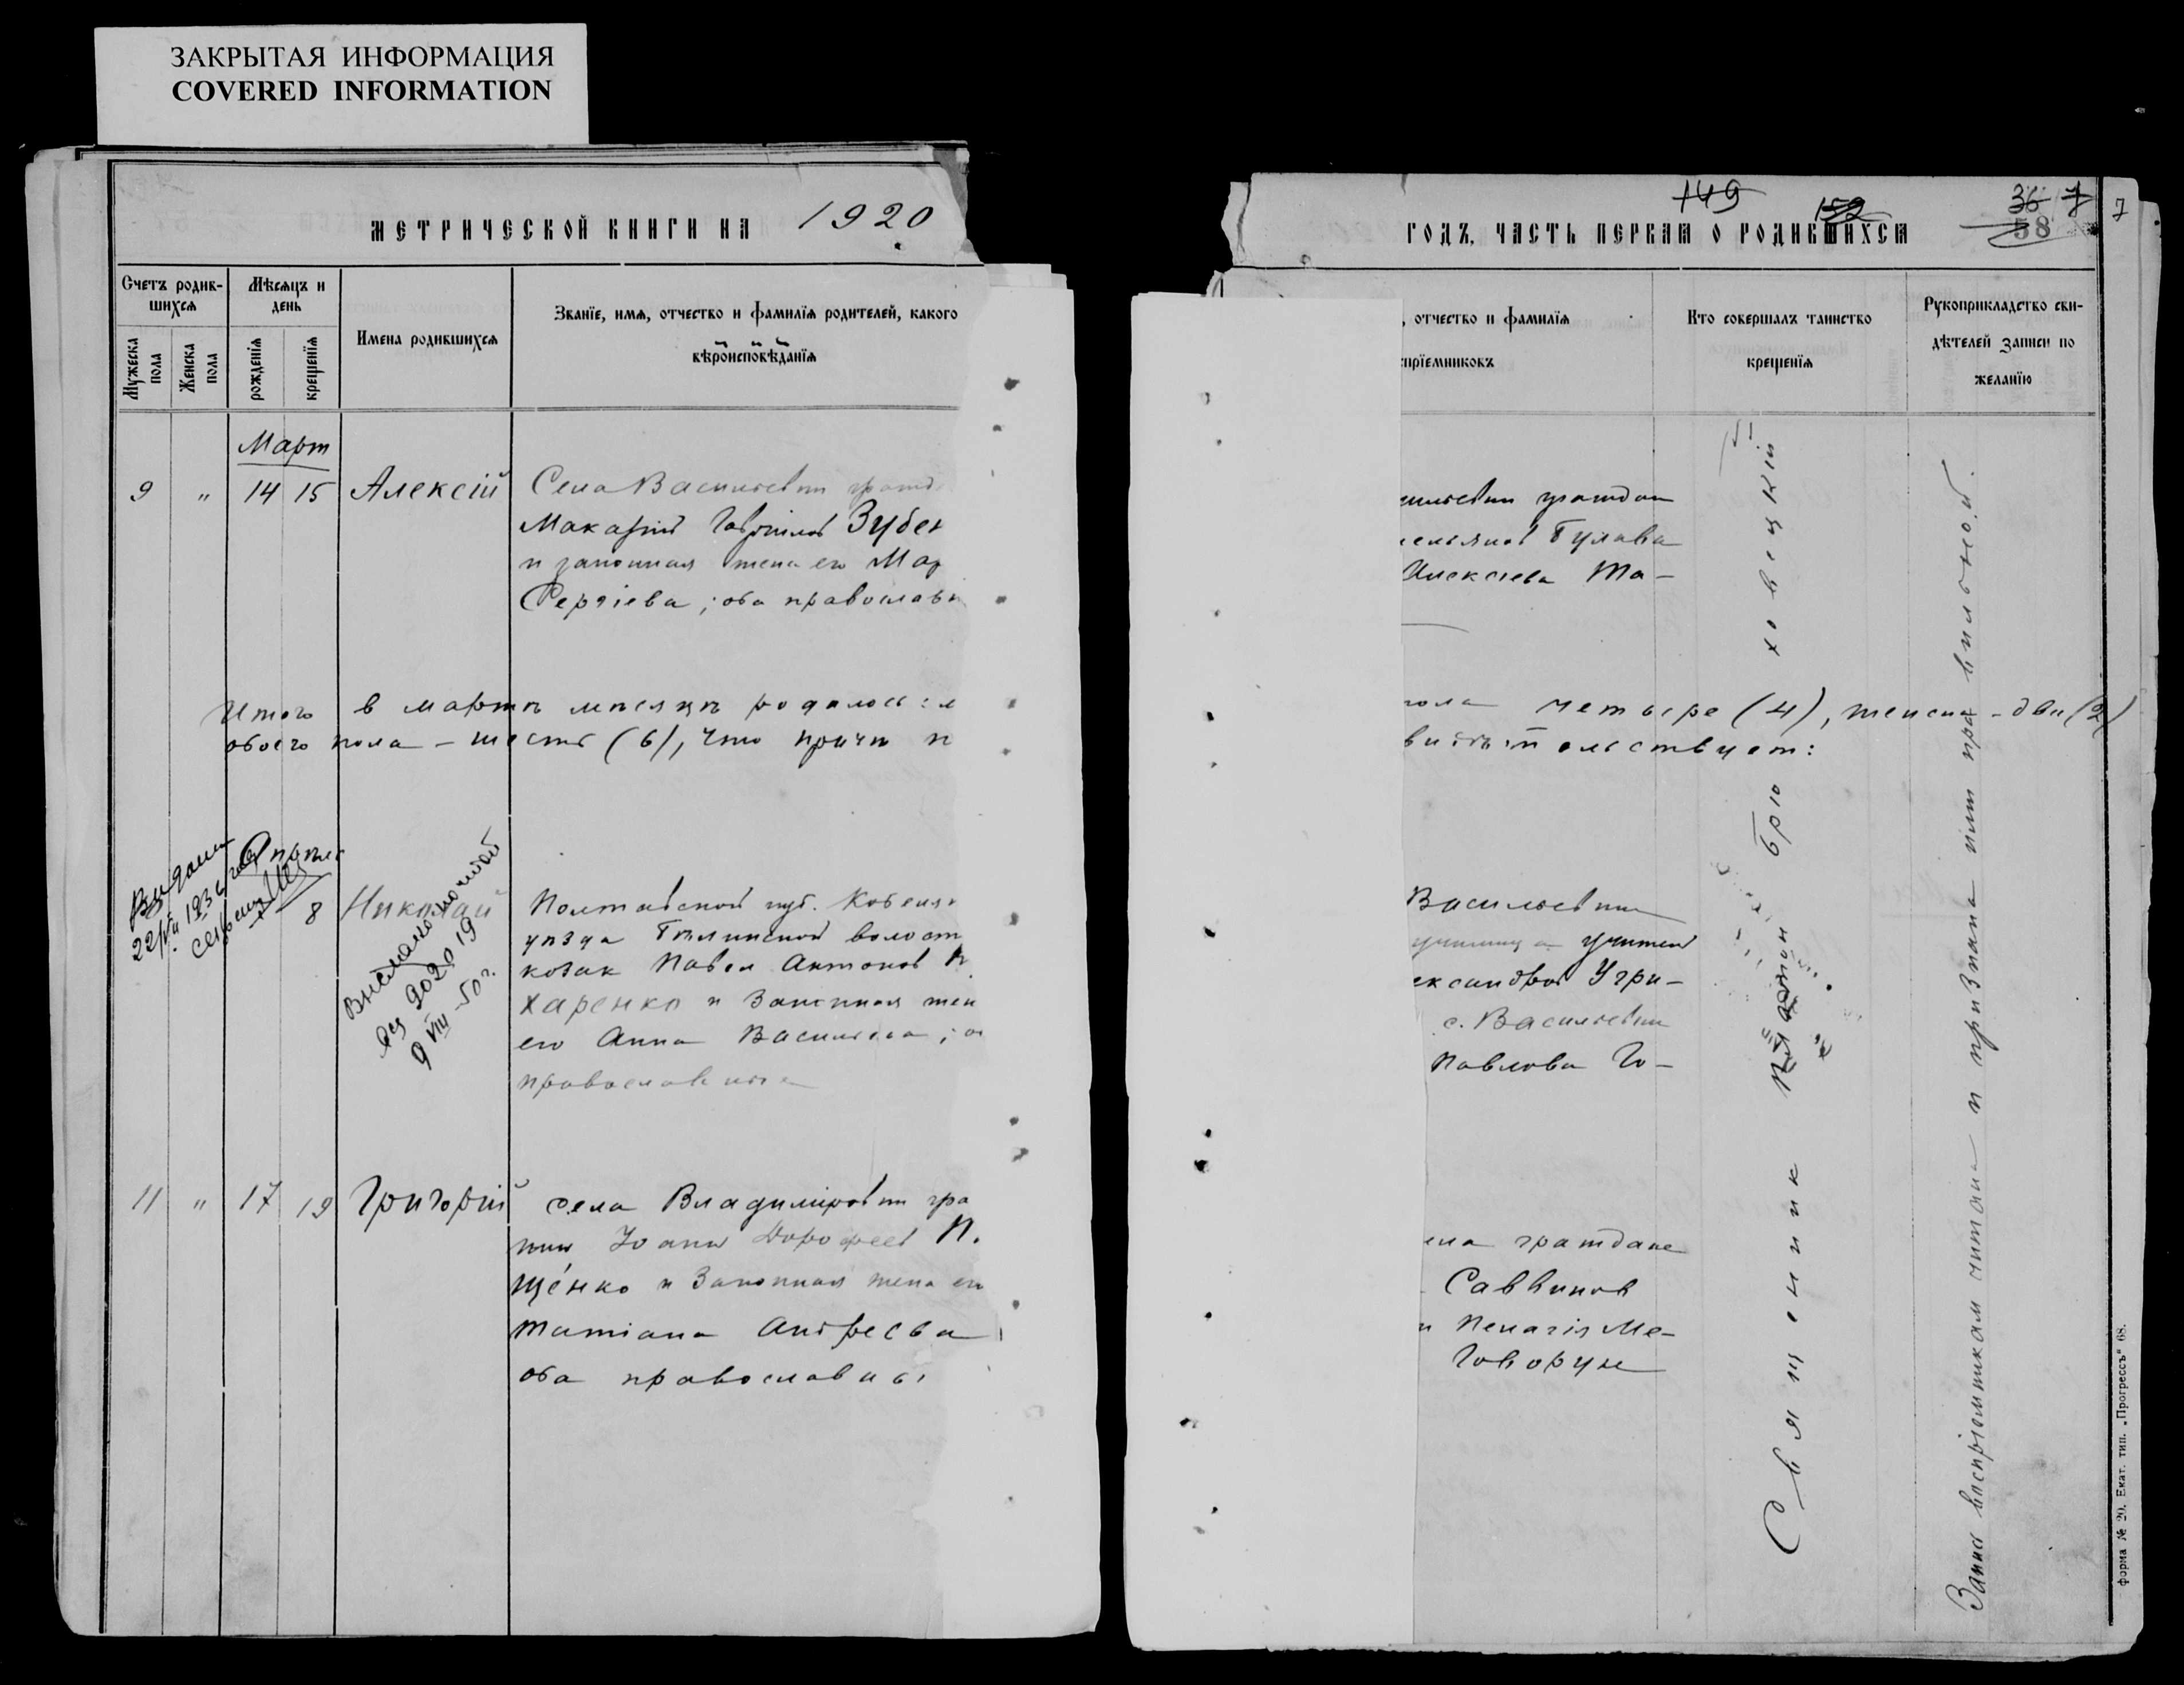 ЗАКРЫТАЯ ИНФОРМАЦИЯ
COVERED INFORMATION
МЕТРИЧЕСКОЙ КНИГИ НА 1920
Счетъ родив-
шихся
Мѣсяцъ и
день
Мужеска
пола
Женска
пола
рожденія
крещенія
Имена родившихся
Званїе, имя, отчество и фамилїя родителей, какого
вѣроисповѣданїя
Март
9 " 14 15 Алексій Села Васильевки
Макарій Гавріилов Зубен
и законная жена его Мар
Сергіева; оба православн
Итого в мартѣ мѣсяцѣ родилось: м
обоего пола – шесть (6), что причт п
Видана
22/VII 193
Апрѣль
8 Николай
Выслано повтор
9 VIII-50 г.
Полтавской губ. Кобеляк
уѣзда волост
козак Павел Антонов
харенко и Законная жен
его Анна Васильева; о
православные
11 " 17 19 Григорій села Владиміровки гра
Іоанн Дорофеев П.
щенко и Законная жена его
Татіана Андреева
оба православны
149
152
36 7
58
7
ГОДЪ, ЧАСТЬ ПЕРВАЯ О РОДИВШИХСЯ
, отчество и фамилїя
спрїемниковъ
Кто совершалъ таинство
крещенїя
Рукоприкладство сви-
дѣтелей записи по
желанїю
сильевки граждан
ельянов Булава
Алексіева Та-
пола четыре (4), женска – две (2)
видѣтельствует:
Васильевки
училища учитель
ександров Угри-
с. Васильевки
Павлова Го-
ела граждане
Саввинов
и Пелагія Ме-
Говорун
Священник Платон Брюховецкій
Запись воспріемникам читана и признана ими правильной.
форма № 20. Екат. тип. „Прогрессъ" 68.